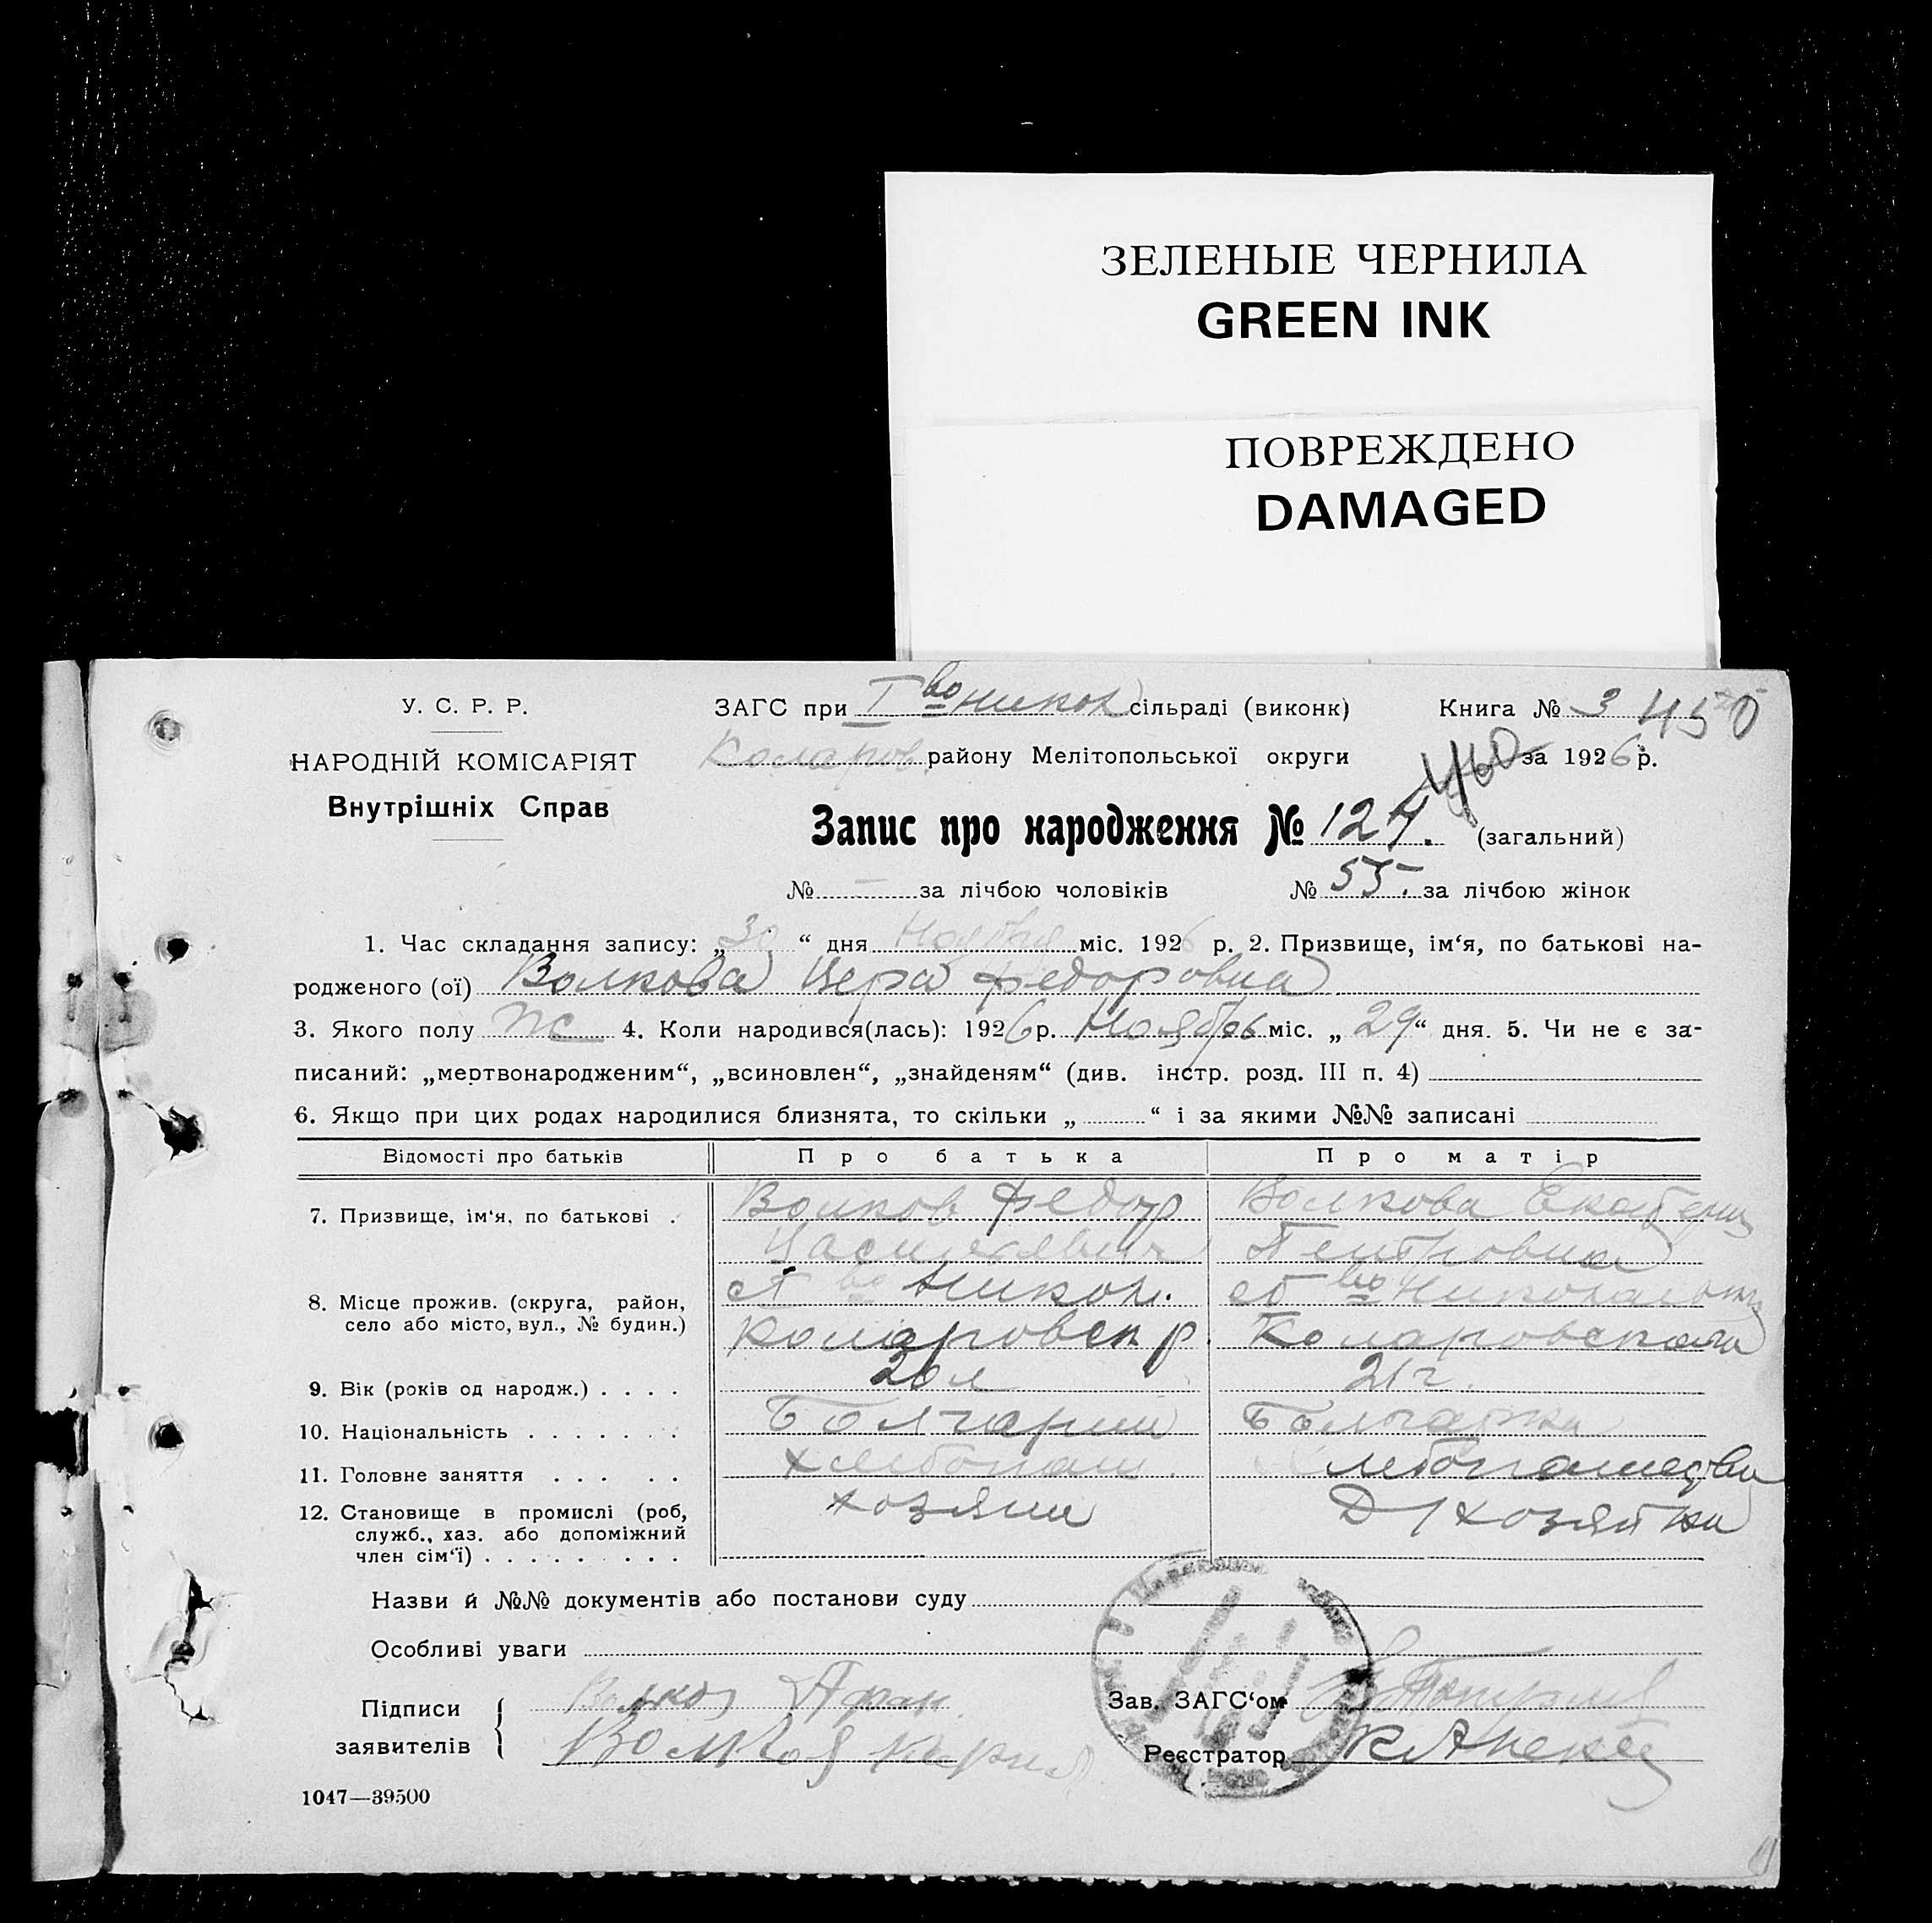 ЗЕЛЕНЫЕ ЧЕРНИЛА
GREEN INK
ПОВРЕЖДЕНО
DAMAGED
У. С. Р. Р.
НАРОДНІЙ КОМІСАРІЯТ
Внутрішніх Справ
ЗАГС при I во Никол сільраді (виконк) Книга № 3 450
Коларов. району Мелітопольської округи за 1926 р.
460
Запис про народження № 124. (загальний)
№ — за лічбою чоловіків № 55. за лічбою жінок
1. Час складання запису: „30“ дня Ноября міс. 1926 р. 2. Призвище, ім‘я, по батькові на-
родженого (ої) Волкова Вера Федоровна
3. Якого полу ж 4. Коли народився(лась): 1926 р. Ноябрь міс. „29“ дня. 5. Чи не є за-
писаний: „мертвонародженим“, „всиновлен“, „знайденям“ (див. інстр. розд. III п. 4)
6. Якщо при цих родах народилися близнята, то скільки „ “ і за якими №№ записані
Відомості про батьків Про батька Про матір
7. Призвище, ім‘я, по батькові . Волков Федор Волкова Екатерина
Василевич Петровна
8. Місце прожив. (округа, район, с I во Никол. с I во
село або місто, вул., № будин.) Коларовск р. Коларовского
9. Вік (років од народж.) . . . . 20 л 21 г.
10. Національність . . . . . . . Болгарин Болгарка
11. Головне заняття . . . . . Хлебопаш.
12. Становище в промислі (роб, хозяин Д/хозяйка
служб., хаз. або допоміжний
член сім‘ї) . . . . . . . . .
Назви й №№ документів або постанови суду
Особливі уваги
Підписи Волков
заявителів Волков
Зав. ЗАГС‘ом
Реєстратор
1047—39500